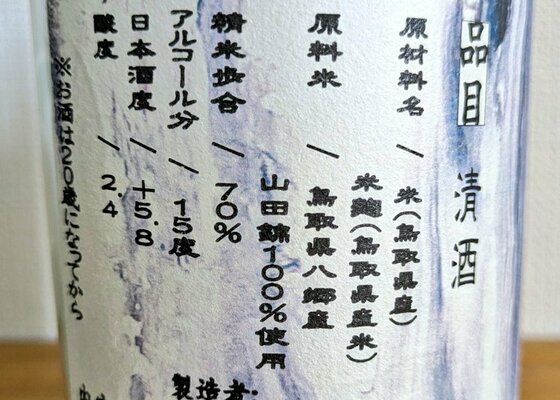 品目 清酒
原材料名/米(鳥取県産)
米麹(鳥取県産米)
原料米/鳥取県八郷産
山田錦100%使用
精米歩合/70%
アルコール分/15度
日本酒度/+5.8
酸度/2.4
※お酒は20歳になってから
製造者